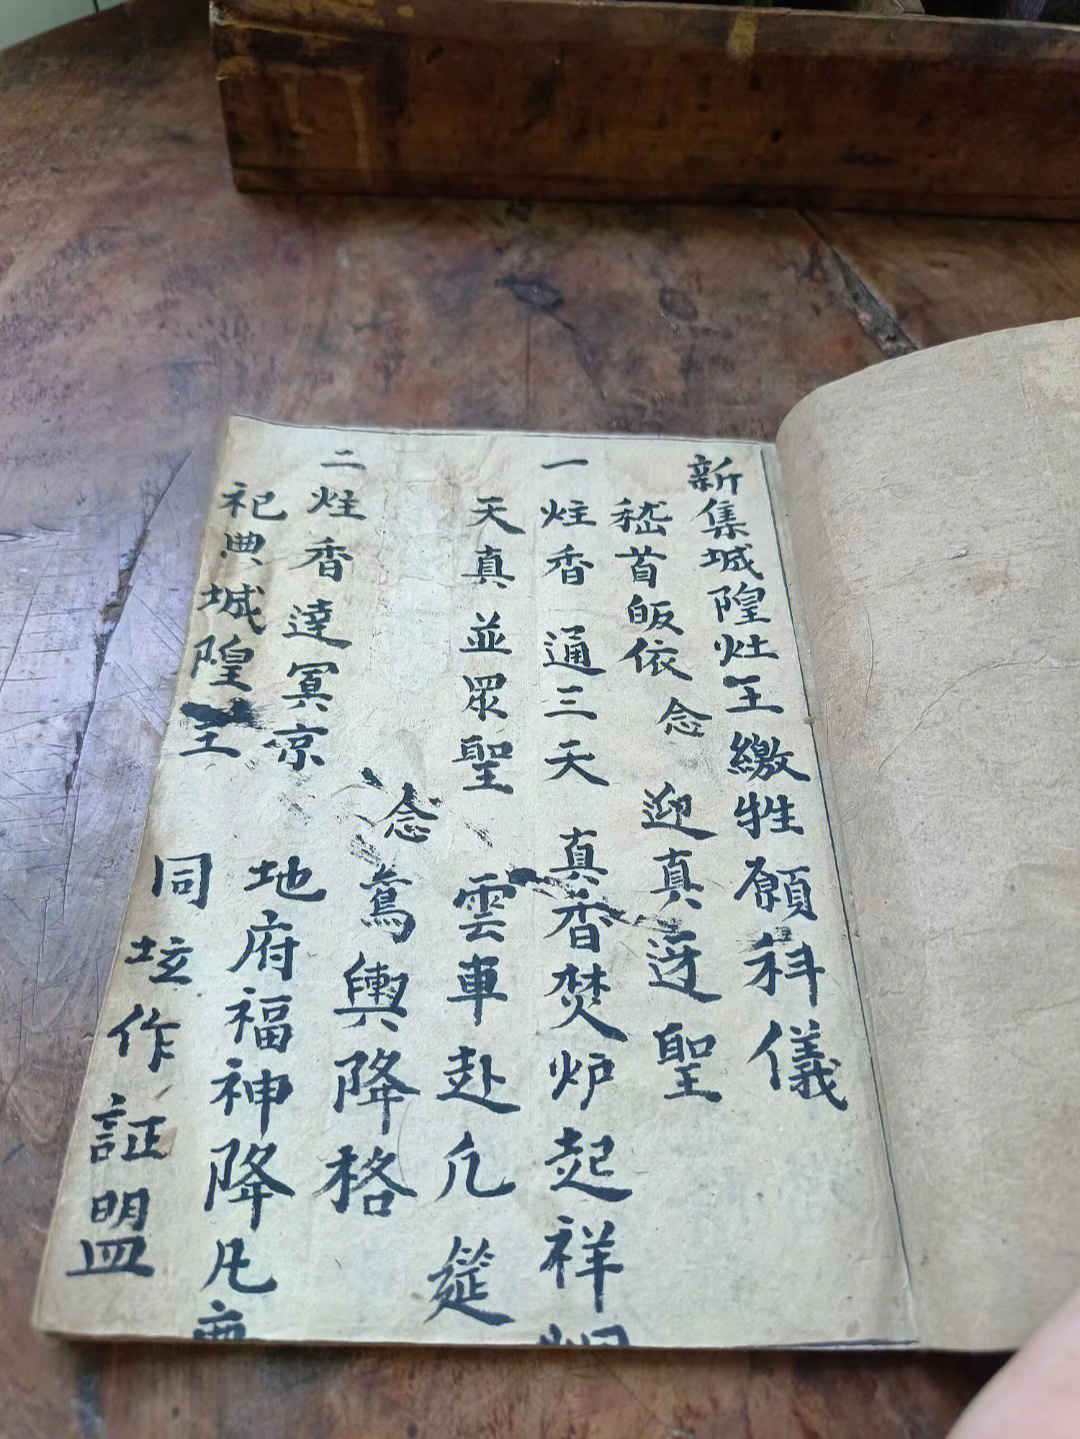 新集城隍灶王繳牲願科儀
稽首皈依 念 迎真迓聖
一炷香 通三天 真香焚炉起祥烟
天真並眾聖 雲車赴凢筵
念 鸞輿降格
二炷香 達冥京 地府福神降凡
祀典城隍主 同坛作証盟